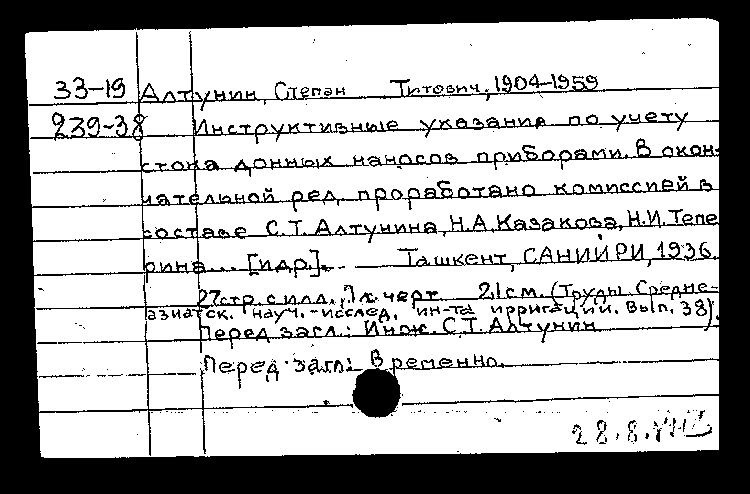 33-19 Алтунин, Степан Титович, 1904-1959
239-38 Инструктивные указания по учету
стока донных наносов приборами. В окон-
чательной ред. проработано комиссией в
составе С.Т. Алтунина, Н.А. Казакова, Н.И. Тепе
рина... [и др.]. Ташкент, САНИЙРИ, 1936.
27 стр. с илл., 1 л. черт. 21 см. (Труды Средне-
азиатск. науч.-исслед. ин-та ирригации. Вып. 38).
Перед загл.: Инж. С.Т. Алтунин
Перед загл.: Временно.
28.8.